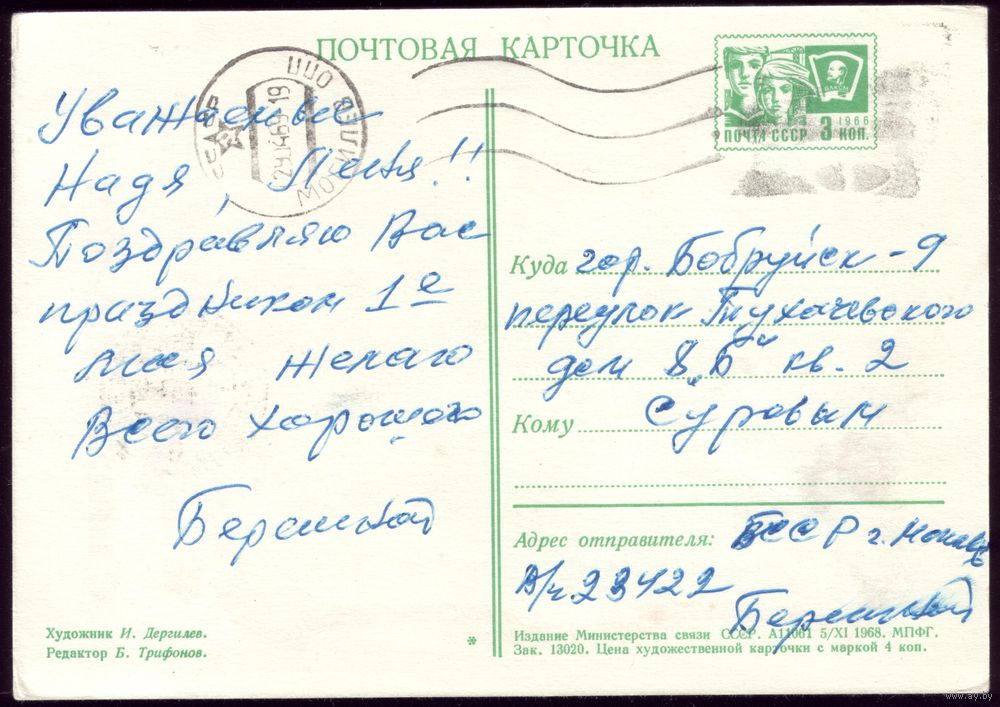 ПОЧТОВАЯ КАРТОЧКА
ПОЧТА СССР 3 КОП.
1966
ВЛКСМ
СССР
29 4 69 19
Уважаемые
Надя, Лёня!!
Поздравляю Вас
праздником 1е
мая желаю
Всего хорошего
Куда гор. Бобруйск-9
переулок Тухачевского
дом 8 „Б" кв. 2
Кому Суровым
Адрес отправителя: БССР г.
В/ч 23422
Художник И. Дергилев.
Редактор Б. Трифонов.
*
Издание Министерства связи СССР. А11001 5/XI 1968. МПФГ.
Зак. 13020. Цена художественной карточки с маркой 4 коп.
www.ay.by